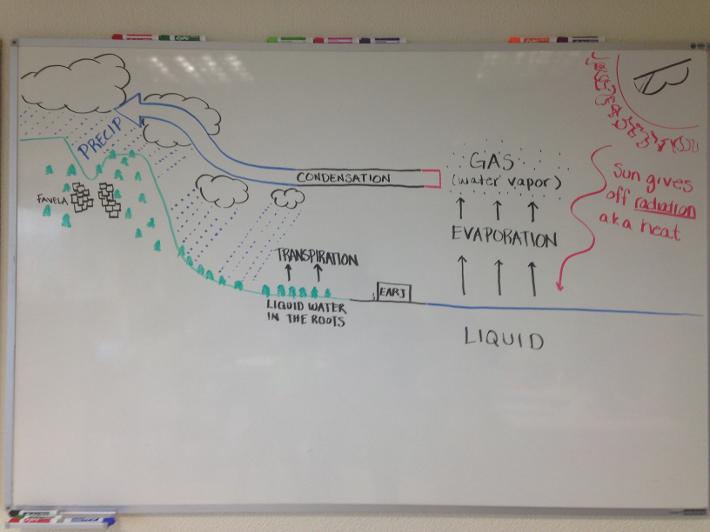 PRECIP
FAVELA
CONDENSATION
TRANSPIRATION
LIQUID WATER
IN THE ROOTS
EARJ
GAS
(water vapor)
EVAPORATION
LIQUID
Sun gives
off radiation
aka heat